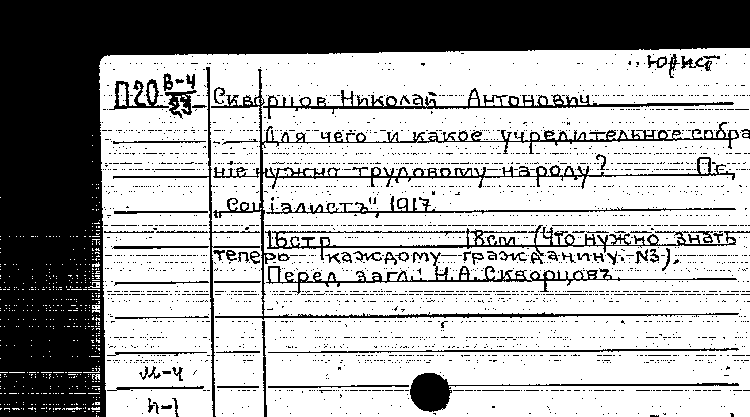 Юрист
П20 В-4/23 Скворцов, Николай Антонович.
Для чего и какое учредительное собра
ніе нужно трудовому народу? Пг.,
„Соціалистъ", 1917.
16стр. 18см. (Что нужно знать
теперь каждому гражданину. №3).
Перед загл.: Н.А.Скворцовъ.
м-4
п-1